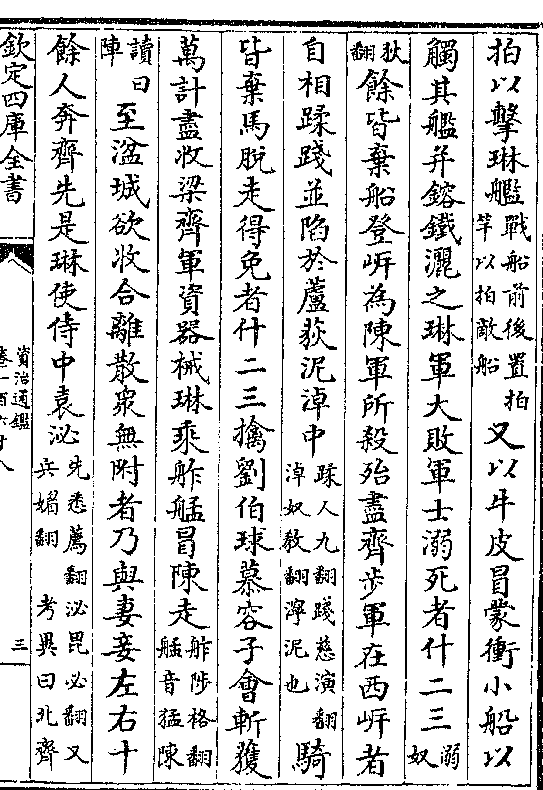 拍以擊琳艦戰船前後置拍竿以拍敵船又以牛皮冒蒙衝小船以
觸其艦并鎔鐵灑之琳軍大敗軍士溺死者什二三溺奴
狄翻餘皆棄船登岍為陳軍所殺殆盡齊步軍在西岍者
自相蹂踐並陷於蘆荻泥淖中蹂人九翻踐慈演翻淖奴敎翻濘泥也騎
皆棄馬脫走得免者什二三擒劉伯球慕容子會斬獲
萬計盡收梁齊軍資器械琳乘舴艋冒陳走舴陟格翻艋音猛陳
讀曰陣至湓城欲收合離散衆無附者乃與妻妾左右十
餘人奔齊先是琳使侍中袁泌先悉薦翻泌毘必翻又兵媚翻考異曰北齊
欽定四庫全書
資治通鑑
卷一百六十八
三